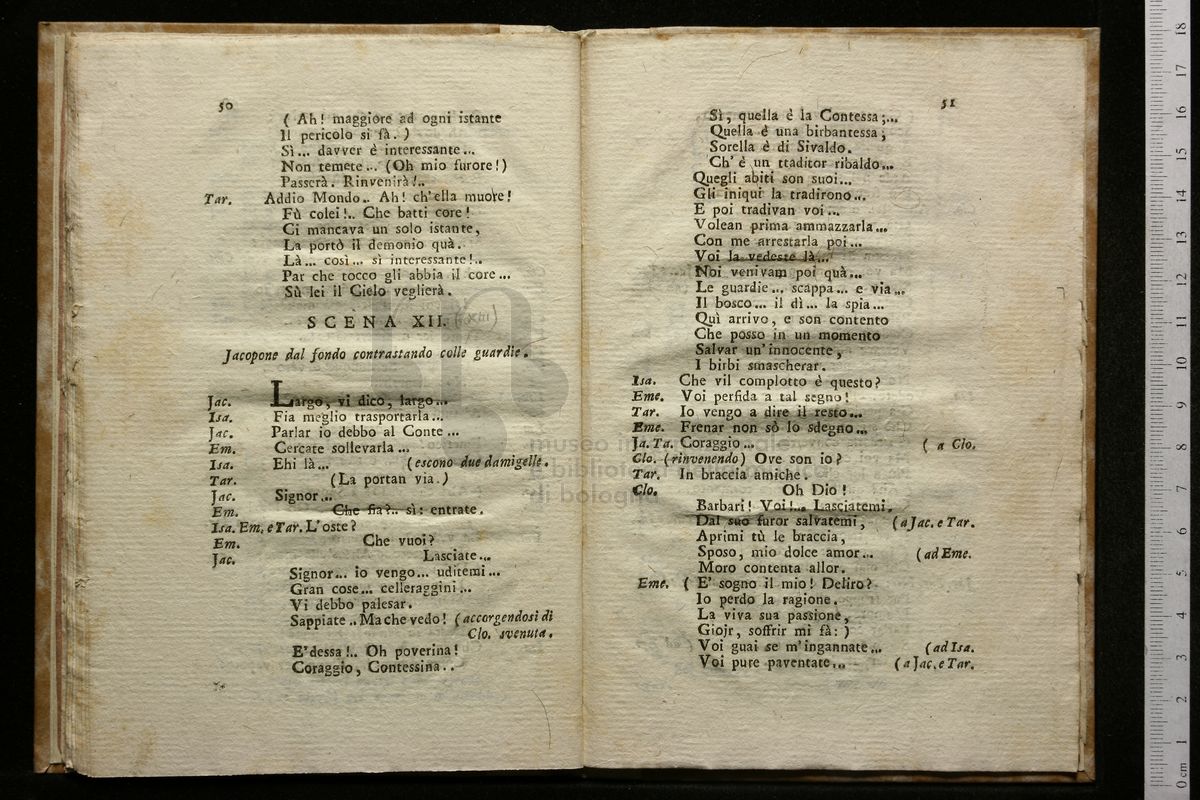 50
( Ah! maggiore ad ogni istante
Il pericolo si fà. )
Sì... davver è interessante...
Non temete... (Oh mio furore!)
Passerà. Rinvenirà!..
Tar. Addio Mondo.. Ah! ch'ella muore!
Fù colei!.. Che batti core!
Ci mancava un solo istante,
La portò il demonio quà.
Là... così... sì interessante!..
Par che tocco gli abbia il core...
Sù lei il Cielo veglierà.
SCENA XII. (XIII)
Jacopone dal fondo contrastando colle guardie.
Jac. Largo, vi dico, largo...
Isa. Fia meglio trasportarla...
Jac. Parlar io debbo al Conte...
Em. Cercate sollevarla...
Isa. Ehi là... (escono due damigelle.
Tar. (La portan via.)
Jac. Signor...
Em. Che fia?.. sì: entrate.
Isa. Em. e Tar. L'oste?
Em. Che vuoi?
Jac. Lasciate...
Signor... io vengo... uditemi...
Gran cose... celleraggini...
Vi debbo palesar.
Sappiate.. Ma che vedo! (accorgendosi di
Clo. svenuta.
E' dessa!.. Oh poverina!
Coraggio, Contessina..
51
Sì, quella è la Contessa;...
Quella è una birbantessa;
Sorella è di Sivaldo.
Ch' è un ttaditor ribaldo...
Quegli abiti son suoi...
Gli iniqui la tradirono...
E poi tradivan voi...
Volean prima ammazzarla...
Con me arrestarla poi...
Voi la vedeste là...
Noi venivam poi quà...
Le guardie... scappa... e via...
Il bosco... il dì... la spia...
Quì arrivo, e son contento
Che posso in un momento
Salvar un' innocente,
I birbi smascherar.
Isa. Che vil complotto è questo?
Eme. Voi perfida a tal segno!
Tar. Io vengo a dire il resto...
Eme. Frenar non sò lo sdegno...
Ja. Ta. Coraggio... ( a Clo.
Clo. (rinvenendo) Ove son io?
Tar. In braccia amiche.
Clo. Oh Dio!
Barbari! Voi!... Lasciatemi.
Dal suo furor salvatemi, (a Jac. e Tar.
Aprimi tù le braccia,
Sposo, mio dolce amor... (ad Eme.
Moro contenta allor.
Eme. ( E' sogno il mio! Deliro?
Io perdo la ragione.
La viva sua passione,
Giojr, soffrir mi fà: )
Voi guai se m'ingannate... (ad Isa.
Voi pure paventate... (a Jac. e Tar.